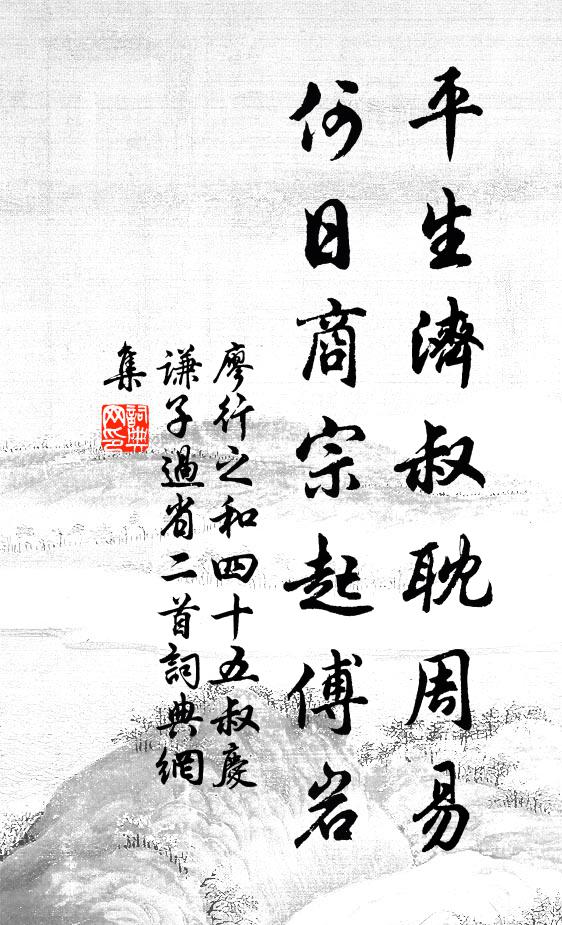 平生濟叔耽周易
何日商宗起傅岩
廖行之和四十五叔慶
謙子過省二首詞典網
集
詞典网印